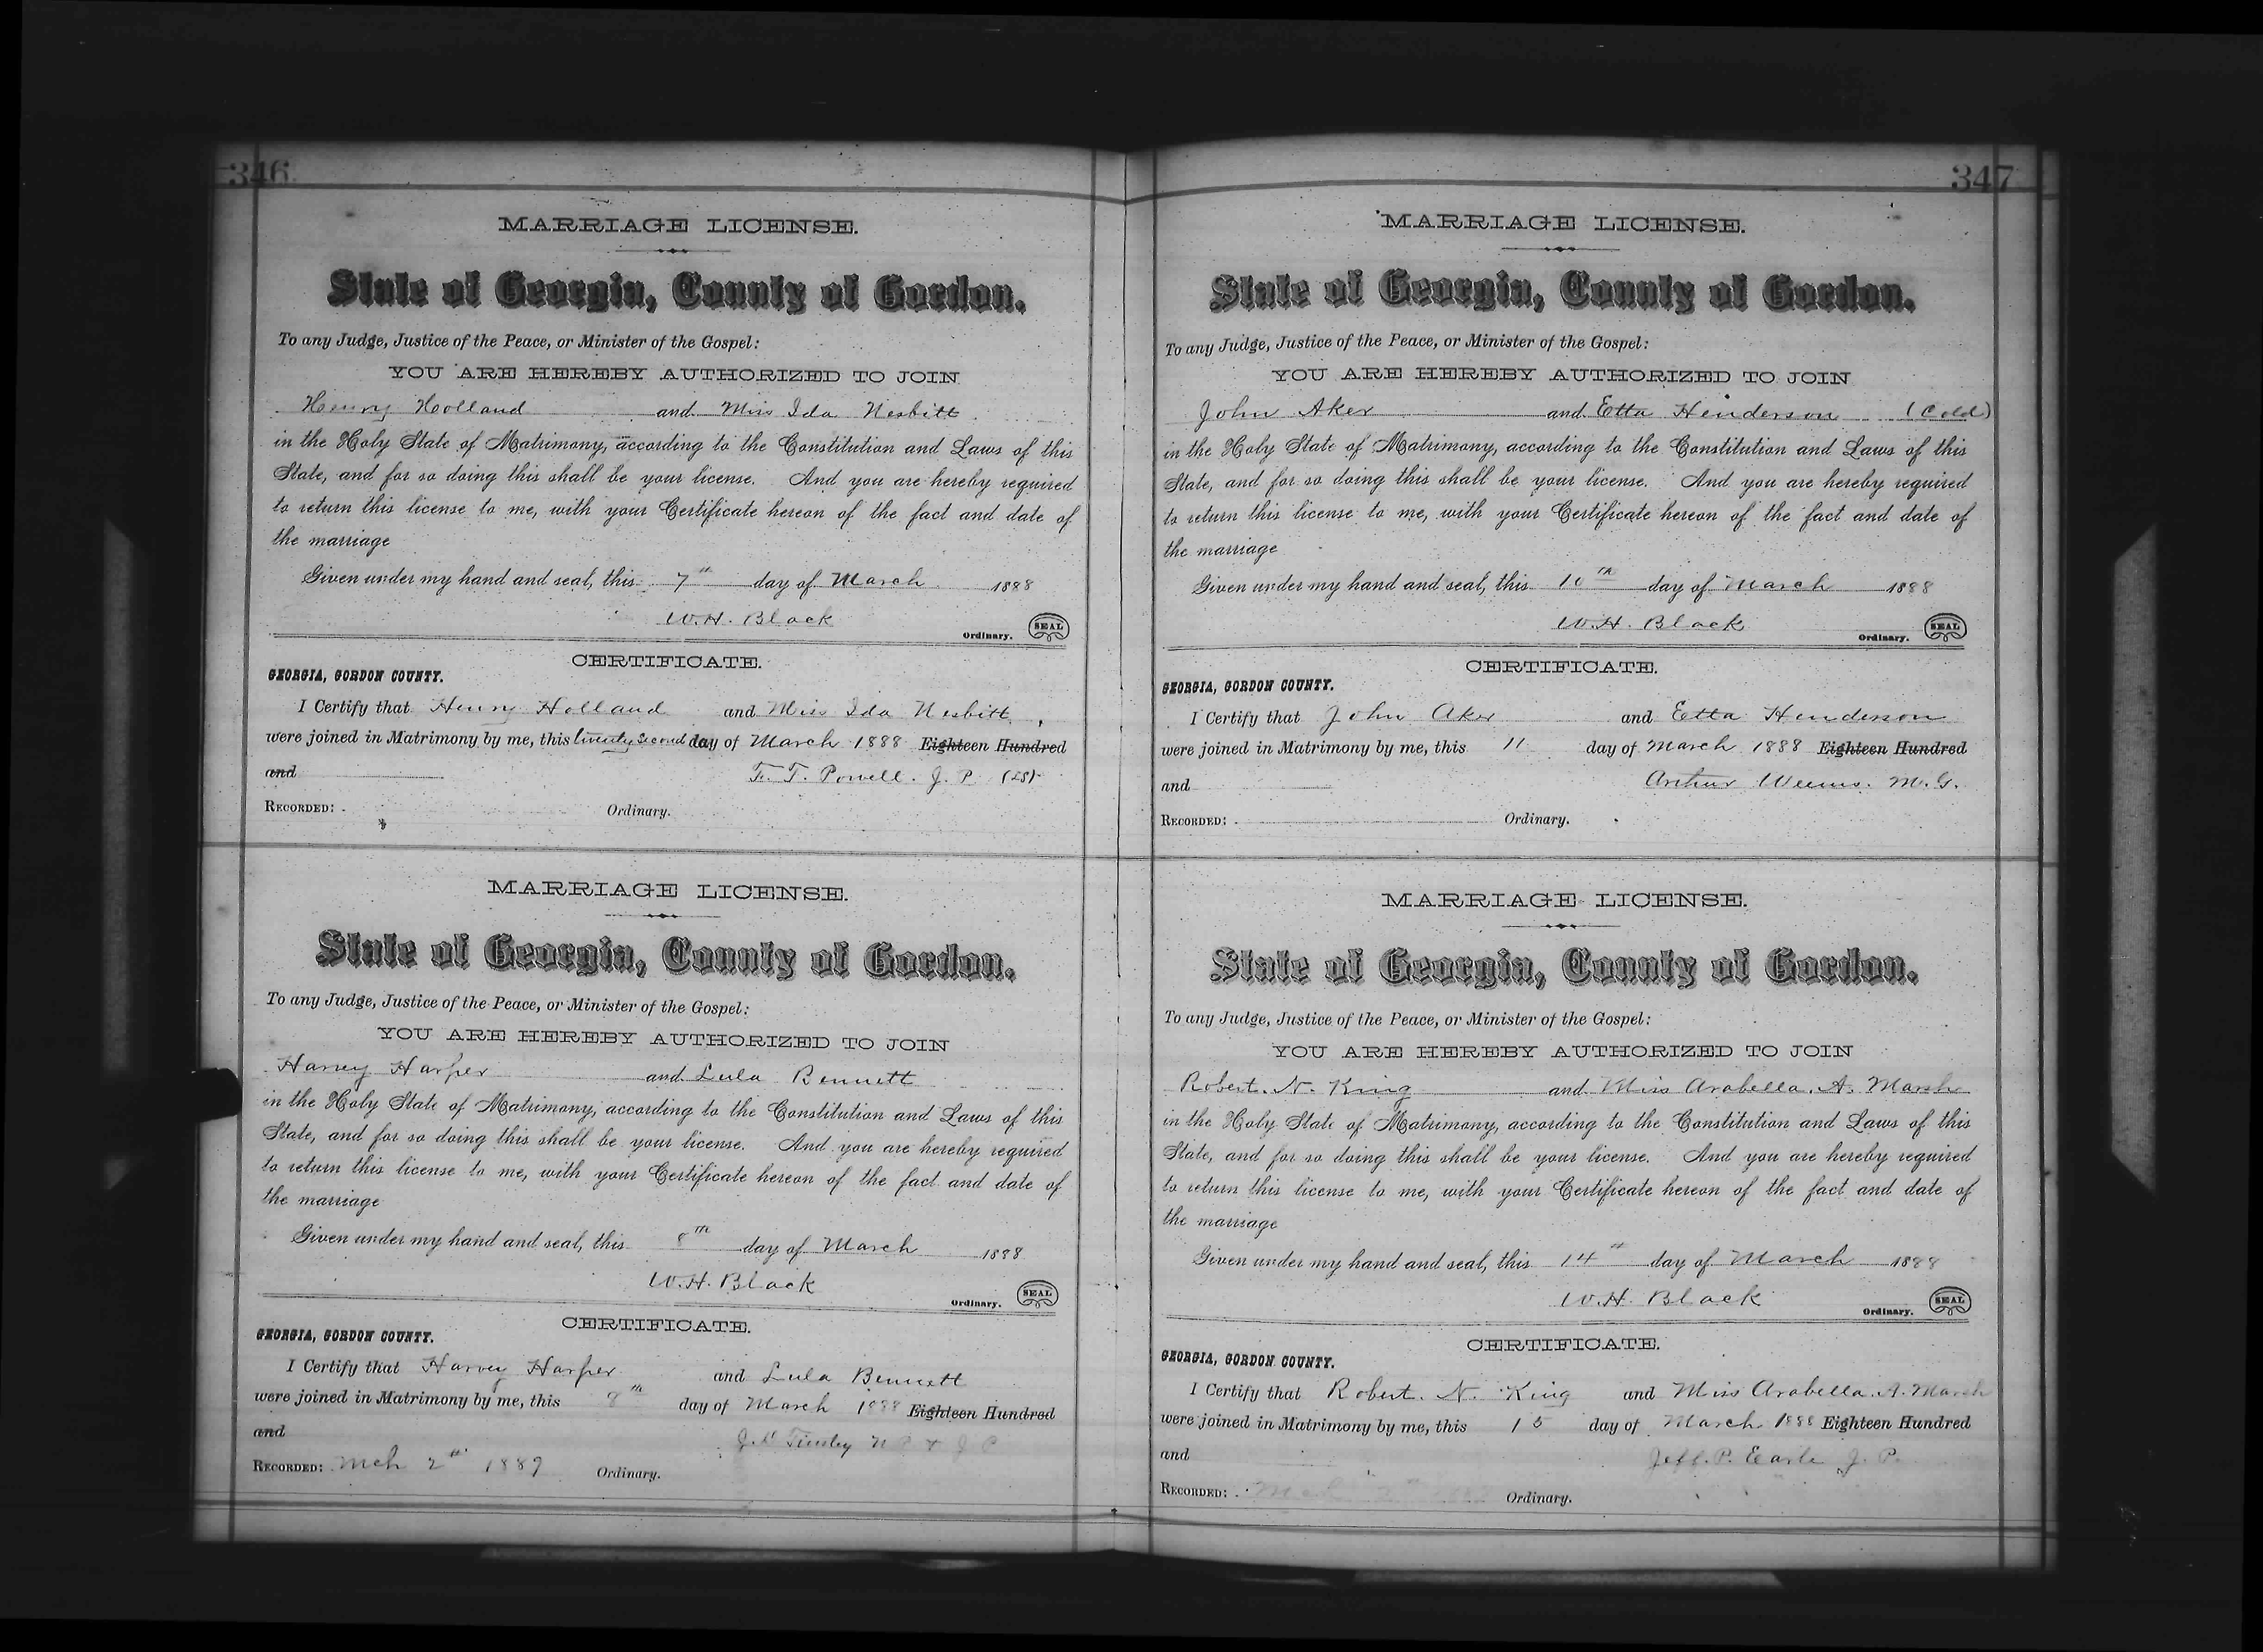 346
MARRIAGE LICENSE.
State of Georgia, County of Gordon.
To any Judge, Justice of the Peace, or Minister of the Gospel:
YOU ARE HEREBY AUTHORIZED TO JOIN
Henry Holland and Miss Ida Nesbitt
in the Holy State of Matrimony, according to the Constitution and Laws of this
State, and for so doing this shall be your license. And you are hereby required
to return this license to me, with your Certificate hereon of the fact and date of
the marriage
Given under my hand and seal, this 7th day of March 1888
W.H. Black
Ordinary. SEAL
CERTIFICATE.
GEORGIA, GORDON COUNTY.
I Certify that Henry Holland and Miss Ida Nesbitt,
were joined in Matrimony by me, this twenty second day of March 1888 Eighteen Hundred
and F. T. Powell. J. P. (LS)
RECORDED: Ordinary.
MARRIAGE LICENSE.
State of Georgia, County of Gordon.
To any Judge, Justice of the Peace, or Minister of the Gospel:
YOU ARE HEREBY AUTHORIZED TO JOIN
Harvey Harper and Lula Bennett
in the Holy State of Matrimony, according to the Constitution and Laws of this
State, and for so doing this shall be your license. And you are hereby required
to return this license to me, with your Certificate hereon of the fact and date of
the marriage
Given under my hand and seal, this 8th day of March 1888
W.H. Black
Ordinary. SEAL
CERTIFICATE.
GEORGIA, GORDON COUNTY.
I Certify that Harvey Harper and Lula Bennett
were joined in Matrimony by me, this 8th day of March 1888 Eighteen Hundred
and Tinsley N P & J P
RECORDED: Mch 2th 1889 Ordinary.
347
MARRIAGE LICENSE.
State of Georgia, County of Gordon.
To any Judge, Justice of the Peace, or Minister of the Gospel:
YOU ARE HEREBY AUTHORIZED TO JOIN
John Aker and Etta Henderson (Cold)
in the Holy State of Matrimony, according to the Constitution and Laws of this
State, and for so doing this shall be your license. And you are hereby required
to return this license to me, with your Certificate hereon of the fact and date of
the marriage
Given under my hand and seal, this 10th day of March 1888
W.H. Black
Ordinary. SEAL
CERTIFICATE.
GEORGIA, GORDON COUNTY.
I Certify that John Aker and Etta Henderson
were joined in Matrimony by me, this 11 day of March 1888 Eighteen Hundred
and Arthur Weems. M.G.
RECORDED: Ordinary.
MARRIAGE LICENSE.
State of Georgia, County of Gordon.
To any Judge, Justice of the Peace, or Minister of the Gospel:
YOU ARE HEREBY AUTHORIZED TO JOIN
Robert. N. King and Miss Arabella. A. Marsh
in the Holy State of Matrimony, according to the Constitution and Laws of this
State, and for so doing this shall be your license. And you are hereby required
to return this license to me, with your Certificate hereon of the fact and date of
the marriage
Given under my hand and seal, this 14th day of March 1888
W.H. Black
Ordinary. SEAL
CERTIFICATE.
GEORGIA, GORDON COUNTY.
I Certify that Robert. N. King and Miss Arabella. A. Marsh
were joined in Matrimony by me, this 15 day of March 1888 Eighteen Hundred
and Jeff. P. Earle J. P.
RECORDED: Ordinary.